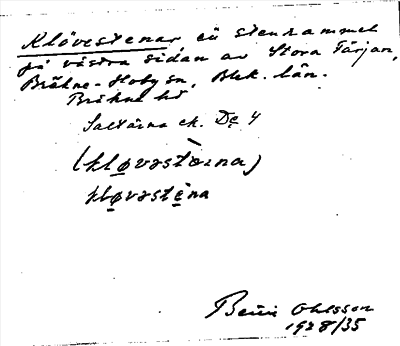 Klövestenar en stenkammel
på västra sidan av Stora Tärjan,
Bräkne-Hoby sn, Blek. län.
Bräkne hd
Saltärna ek. De 4
(kløvəstæ̀ɪna)
kløvəstèna
Ohlsson
1928/35